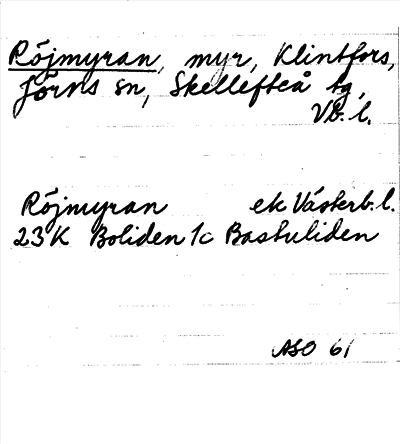 Röjmyran, myr, Klintfors,
Jörns sn, Skellefteå tg,
Vb. l.
Röjmyran ek Västerb. l.
23K Boliden 1c Bastuliden
ASO 61